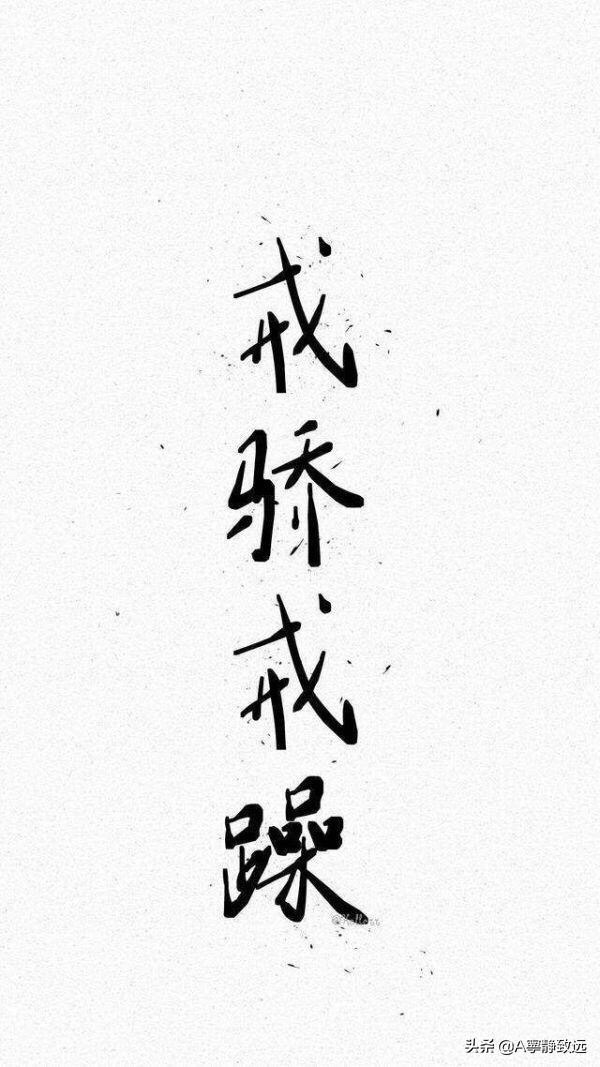 戒骄戒躁
头条 @A寧静致远